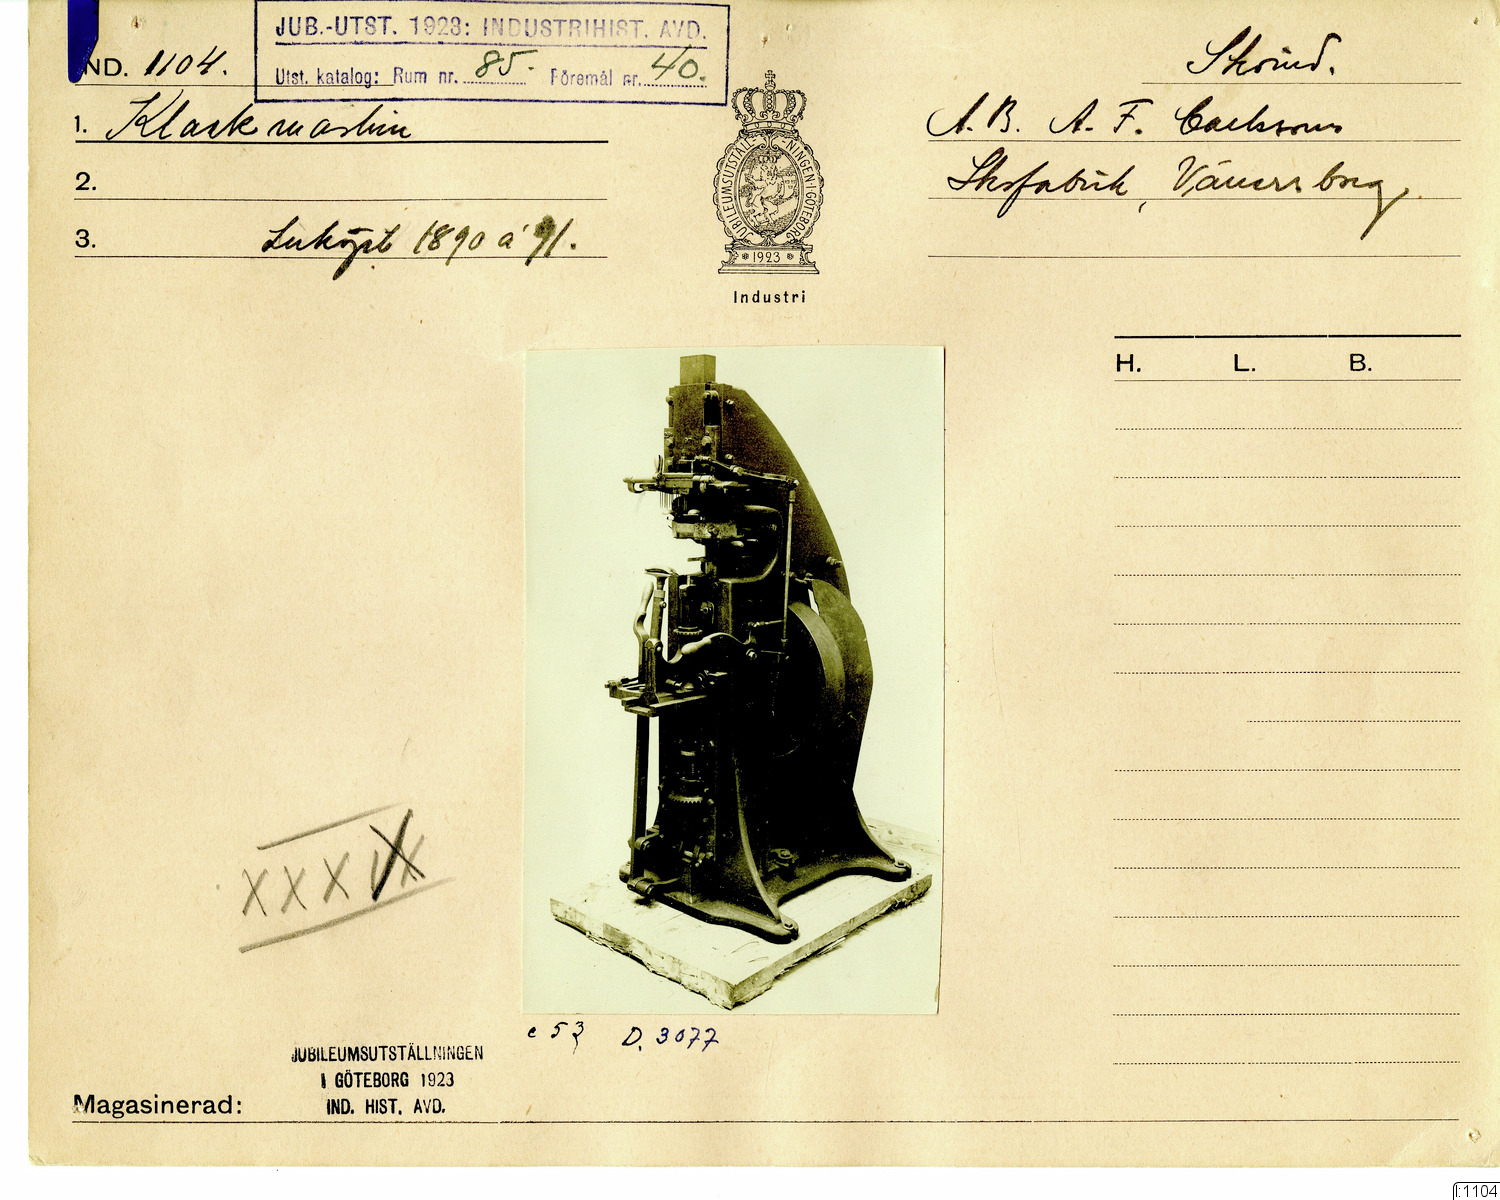 JUB.-UTST. 1923: INDUSTRIHIST. AVD.
Utst. katalog: Rum nr. 85. Föremål nr. 40.
IND. 1104.
1. Klackmaskin
2.
3. Inköpt 1890 à 91.
JUBILEUMSUTSTÄLLNINGEN I GÖTEBORG
1923
Industri
Skoind.
A.B. A. F. Carlssons
Skofabrik, Vänersborg
H. L. B.
XXXIX
c 53 D. 3077
JUBILEUMSUTSTÄLLNINGEN
I GÖTEBORG 1923
IND. HIST. AVD.
Magasinerad:
I:1104